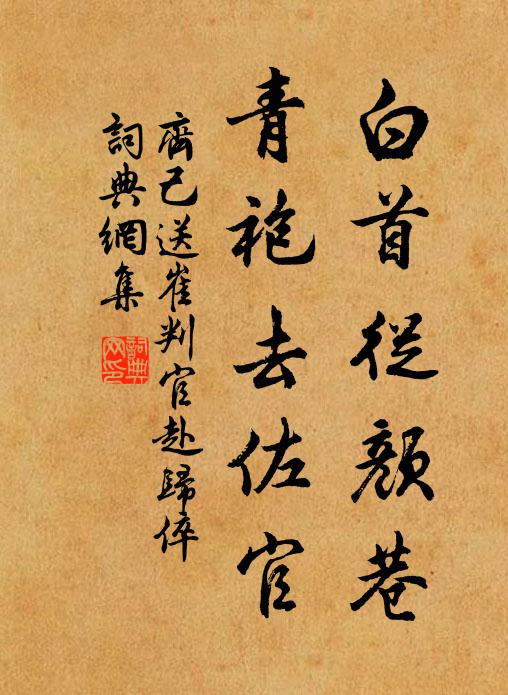 白首從顏巷
青袍去佐官
齊己送崔判官赴歸倅
詞典網集
詞典網印